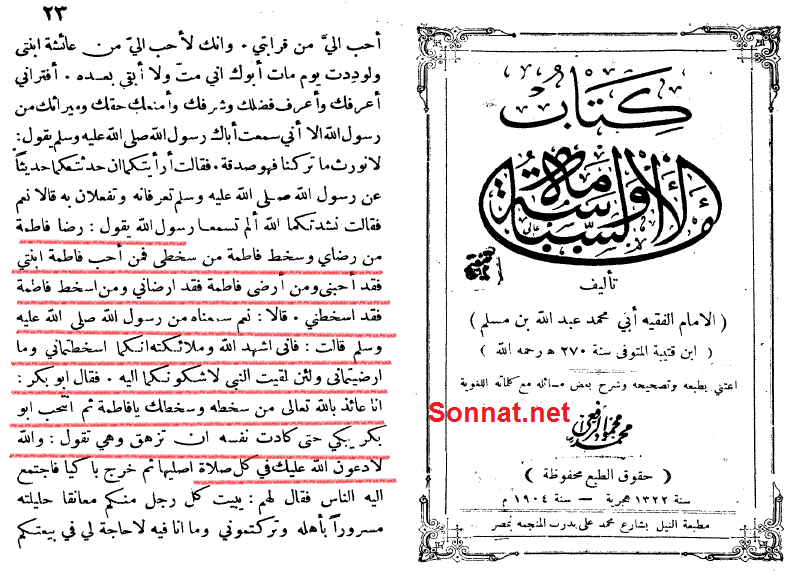 ٢٣
أحب اليَّ من قرابتي . وانك لأحب اليّ من عائشة ابنتى
ولوددت يوم مات أبوك اني متّ ولا أبقي بعده . أفتراني
أعرفك وأعرف فضلك وشرفك وأمنعك حقك وميراثك من
رسول الله الا أني سمعت أباك رسول الله صلى الله عليه وسلم يقول :
لا نورث ما تركنا فهو صدقة . فقالت أرأيتكما ان حدثتكما حديثاً
عن رسول الله صلى الله عليه وسلم تعرفانه وتفعلان به قالا نعم
فقالت نشدتكما الله ألم تسمعا رسول الله يقول : رضا فاطمة
من رضاي وسخط فاطمة من سخطى فمن أحب فاطمة ابنتي
فقد أحبنى ومن أرضى فاطمة فقد ارضاني ومن اسخط فاطمة
فقد اسخطني . قالا : نعم سمعناه من رسول الله صلى الله عليه
وسلم قالت : فانى اشهد الله وملائكته انكما اسخطتماني وما
ارضيتمانى ولئن لقيت النبي لاشكونكما اليه . فقال ابو بكر :
انا عائذ بالله تعالى من سخطه وسخطك يافاطمة ثم انتحب ابو
بكر يبكي حتى كادت نفسه ان تزهق وهي تقول : والله
لادعون الله عليك في كل صلاة اصليها ثم خرج باكيا فاجتمع
اليه الناس فقال لهم : يبيت كل رجل منكم معانقا حليلته
مسروراً بأهله وتركتموني وما انا فيه لاحاجة لي في بيعتكم
كتاب
الأمامة والسياسة
تأليف
( الامام الفقيه أبي محمد عبد الله بن مسلم )
( ابن قتيبة المتوفى سنة ٢٧٠ ه رحمه الله )
اعتني بطبعه وتصحيحه وشرح بعض مسائله مع كلماته اللغوية
Sonnat.net
محمد محمود الرافعي
( حقوق الطبع محفوظة )
سنة ١٣٢٢ هجرية — سنة ١٩٠٤ م
مطبعة النيل بشارع محمد على بدرب المنجمه بمصر